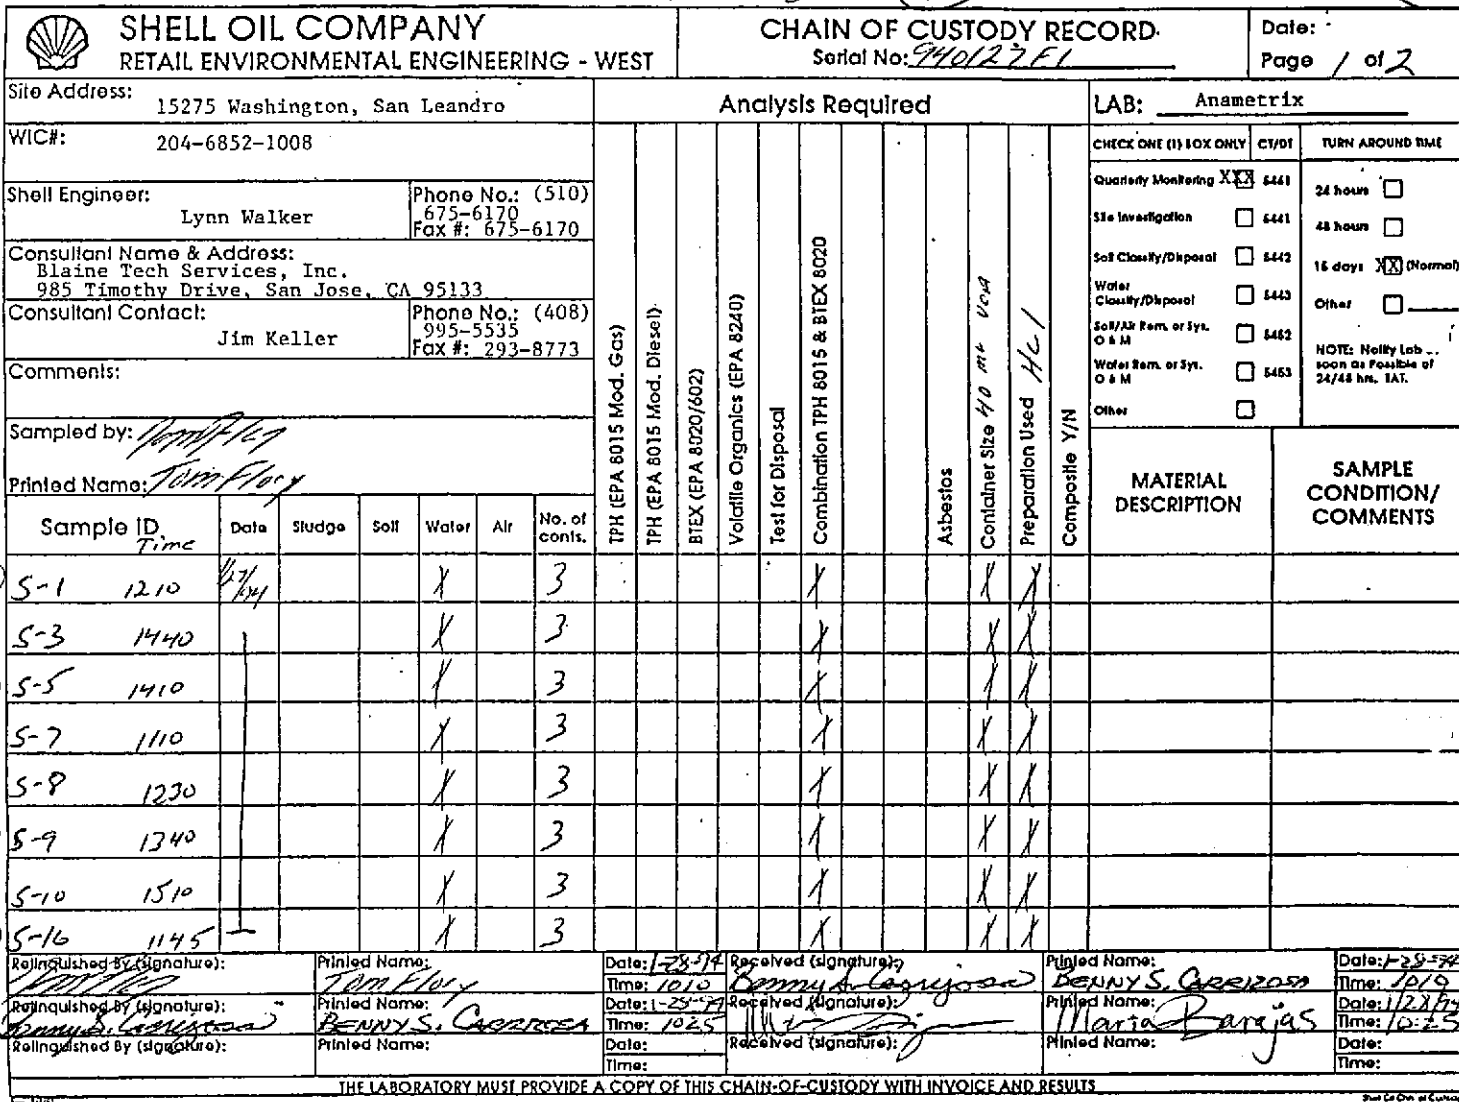 SHELL OIL COMPANY
RETAIL ENVIRONMENTAL ENGINEERING - WEST
CHAIN OF CUSTODY RECORD
Serial No: 940127F1
Date:
Page 1 of 2
Site Address: 15275 Washington, San Leandro
WIC#: 204-6852-1008
Shell Engineer: Lynn Walker
Phone No.: (510) 675-6170
Fax #: 675-6170
Consultant Name & Address:
Blaine Tech Services, Inc.
985 Timothy Drive, San Jose, CA 95133
Consultant Contact: Jim Keller
Phone No.: (408) 995-5535
Fax #: 293-8773
Comments:
Sampled by: Tom Flory
Printed Name: Tom Flory
Analysis Required
LAB: Anametrix
CHECK ONE (1) BOX ONLY CT/DT
Quarterly Monitoring XXX 5441
Site Investigation 5441
Soil Classify/Disposal 5442
Water Classify/Disposal 5443
Soil/Air Rem. or Sys. O & M 5452
Water Rem. or Sys. O & M 5453
Other
TURN AROUND TIME
24 hours
48 hours
15 days XX (Normal)
Other
NOTE: Notify Lab
soon as Possible of
24/48 hrs. TAT.
Sample ID Time
Date
Sludge
Soil
Water
Air
No. of conts.
TPH (EPA 8015 Mod. Gas)
TPH (EPA 8015 Mod. Diesel)
BTEX (EPA 8020/602)
Volatile Organics (EPA 8240)
Test for Disposal
Combination TPH 8015 & BTEX 8020
Asbestos
Container Size 40 ml VOA
Preparation Used HCl
Composite Y/N
MATERIAL DESCRIPTION
SAMPLE CONDITION/ COMMENTS
S-1 1210 1/27/94 X 3 X X X
S-3 1440 X 3 X X X
S-5 1410 X 3 X X X
S-7 1110 X 3 X X X
S-8 1230 X 3 X X X
S-9 1340 X 3 X X X
S-10 1510 X 3 X X X
S-16 1145 X 3 X X X
Relinquished By (signature): Tom Flory
Printed Name: Tom Flory
Date: 1-28-94
Time: 1010
Received (signature): Benny S. Carrizosa
Printed Name: BENNY S. CARRIZOSA
Date: 1-28-94
Time: 1010
Relinquished By (signature): Benny S. Carrizosa
Printed Name: BENNY S. CARRIZOSA
Date: 1-28-94
Time: 1025
Received (signature):
Printed Name: Maria Barajas
Date: 1/28/94
Time: 10:25
Relinquished By (signature):
Printed Name:
Date:
Time:
Received (signature):
Printed Name:
Date:
Time:
THE LABORATORY MUST PROVIDE A COPY OF THIS CHAIN-OF-CUSTODY WITH INVOICE AND RESULTS